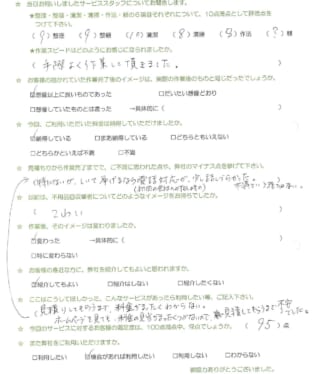 ☆ 当日お伺いしましたサービススタッフについてお聞きします。
★整理・整頓・清潔・清掃・作法・躾の6項目それぞれについて、10点満点として評価点を
つけて下さい。
(9)整理 (9)整頓 (10)清潔 (8)清掃 (5)作法 (?)躾
★作業スピードはどのように感じになられましたか。
(手際よく作業して頂きました。)
☆ お客様の描かれていた作業完了後のイメージは、実際の作業後のものと同じだったでしょうか。
☑想像以上に良いものであった □だいたい想像どおり
□想像していたものとは違った →具体的に( )
☆ 今回、ご利用いただいた料金は納得していただけましたか。
☑納得している □まあ納得している □どちらともいえない
□どちらかといえば不満 □不満
☆ 見積もりから作業完了までで、ご不満に思われた点や、弊社のマイナス点を挙げて下さい。
(特にないが、しいて挙げるなら電話対応が、少し話しづらかった。
☆ 以前は、不用品回収業者についてどのようなイメージをお持ちでしたか。
(こわい)
☆ 作業後、そのイメージは変わりましたか。
☑変わった →具体的に( )
□特に変わらない
☆ お客様の身近な方に、弊社を紹介してもよいと思われますか。
☑紹介してもよい □紹介はしない □紹介したくない
☆ ここはこうしてほしかった、こんなサービスがあったら利用したい等、ご記入下さい。
(見積りしてもらうまで、料金がまったくわからない。
ホームページを見ても、料金の見当がまったくつかないので
☆ 今回のサービスに対するお客様の満足度は、100点満点中、何点でしょうか。(95)点
☆ また弊社をご利用いただけますか。
□利用したい ☑機会があれば利用したい □利用しない □わからない
御協力ありがとうございました。